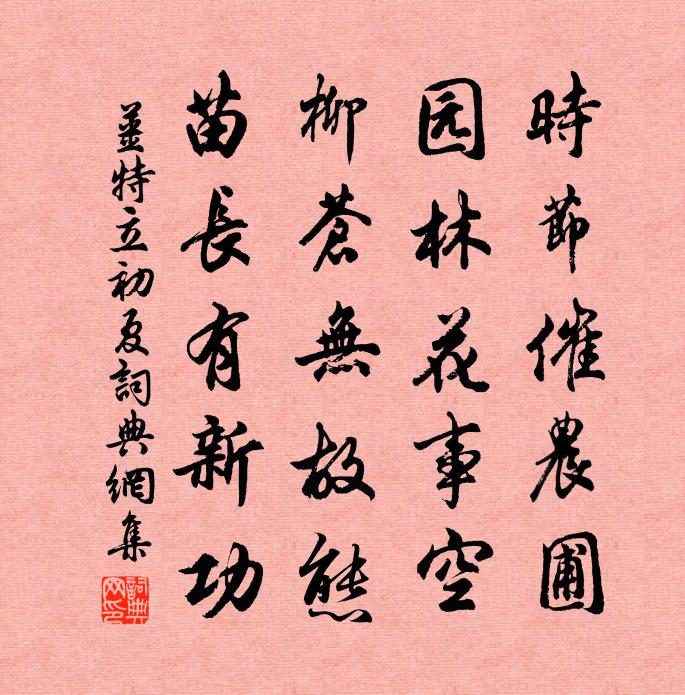 時節催農圃
园林花事空
柳蒼無故態
苗長有新功
姜特立初夏詞典網集
詞典网印